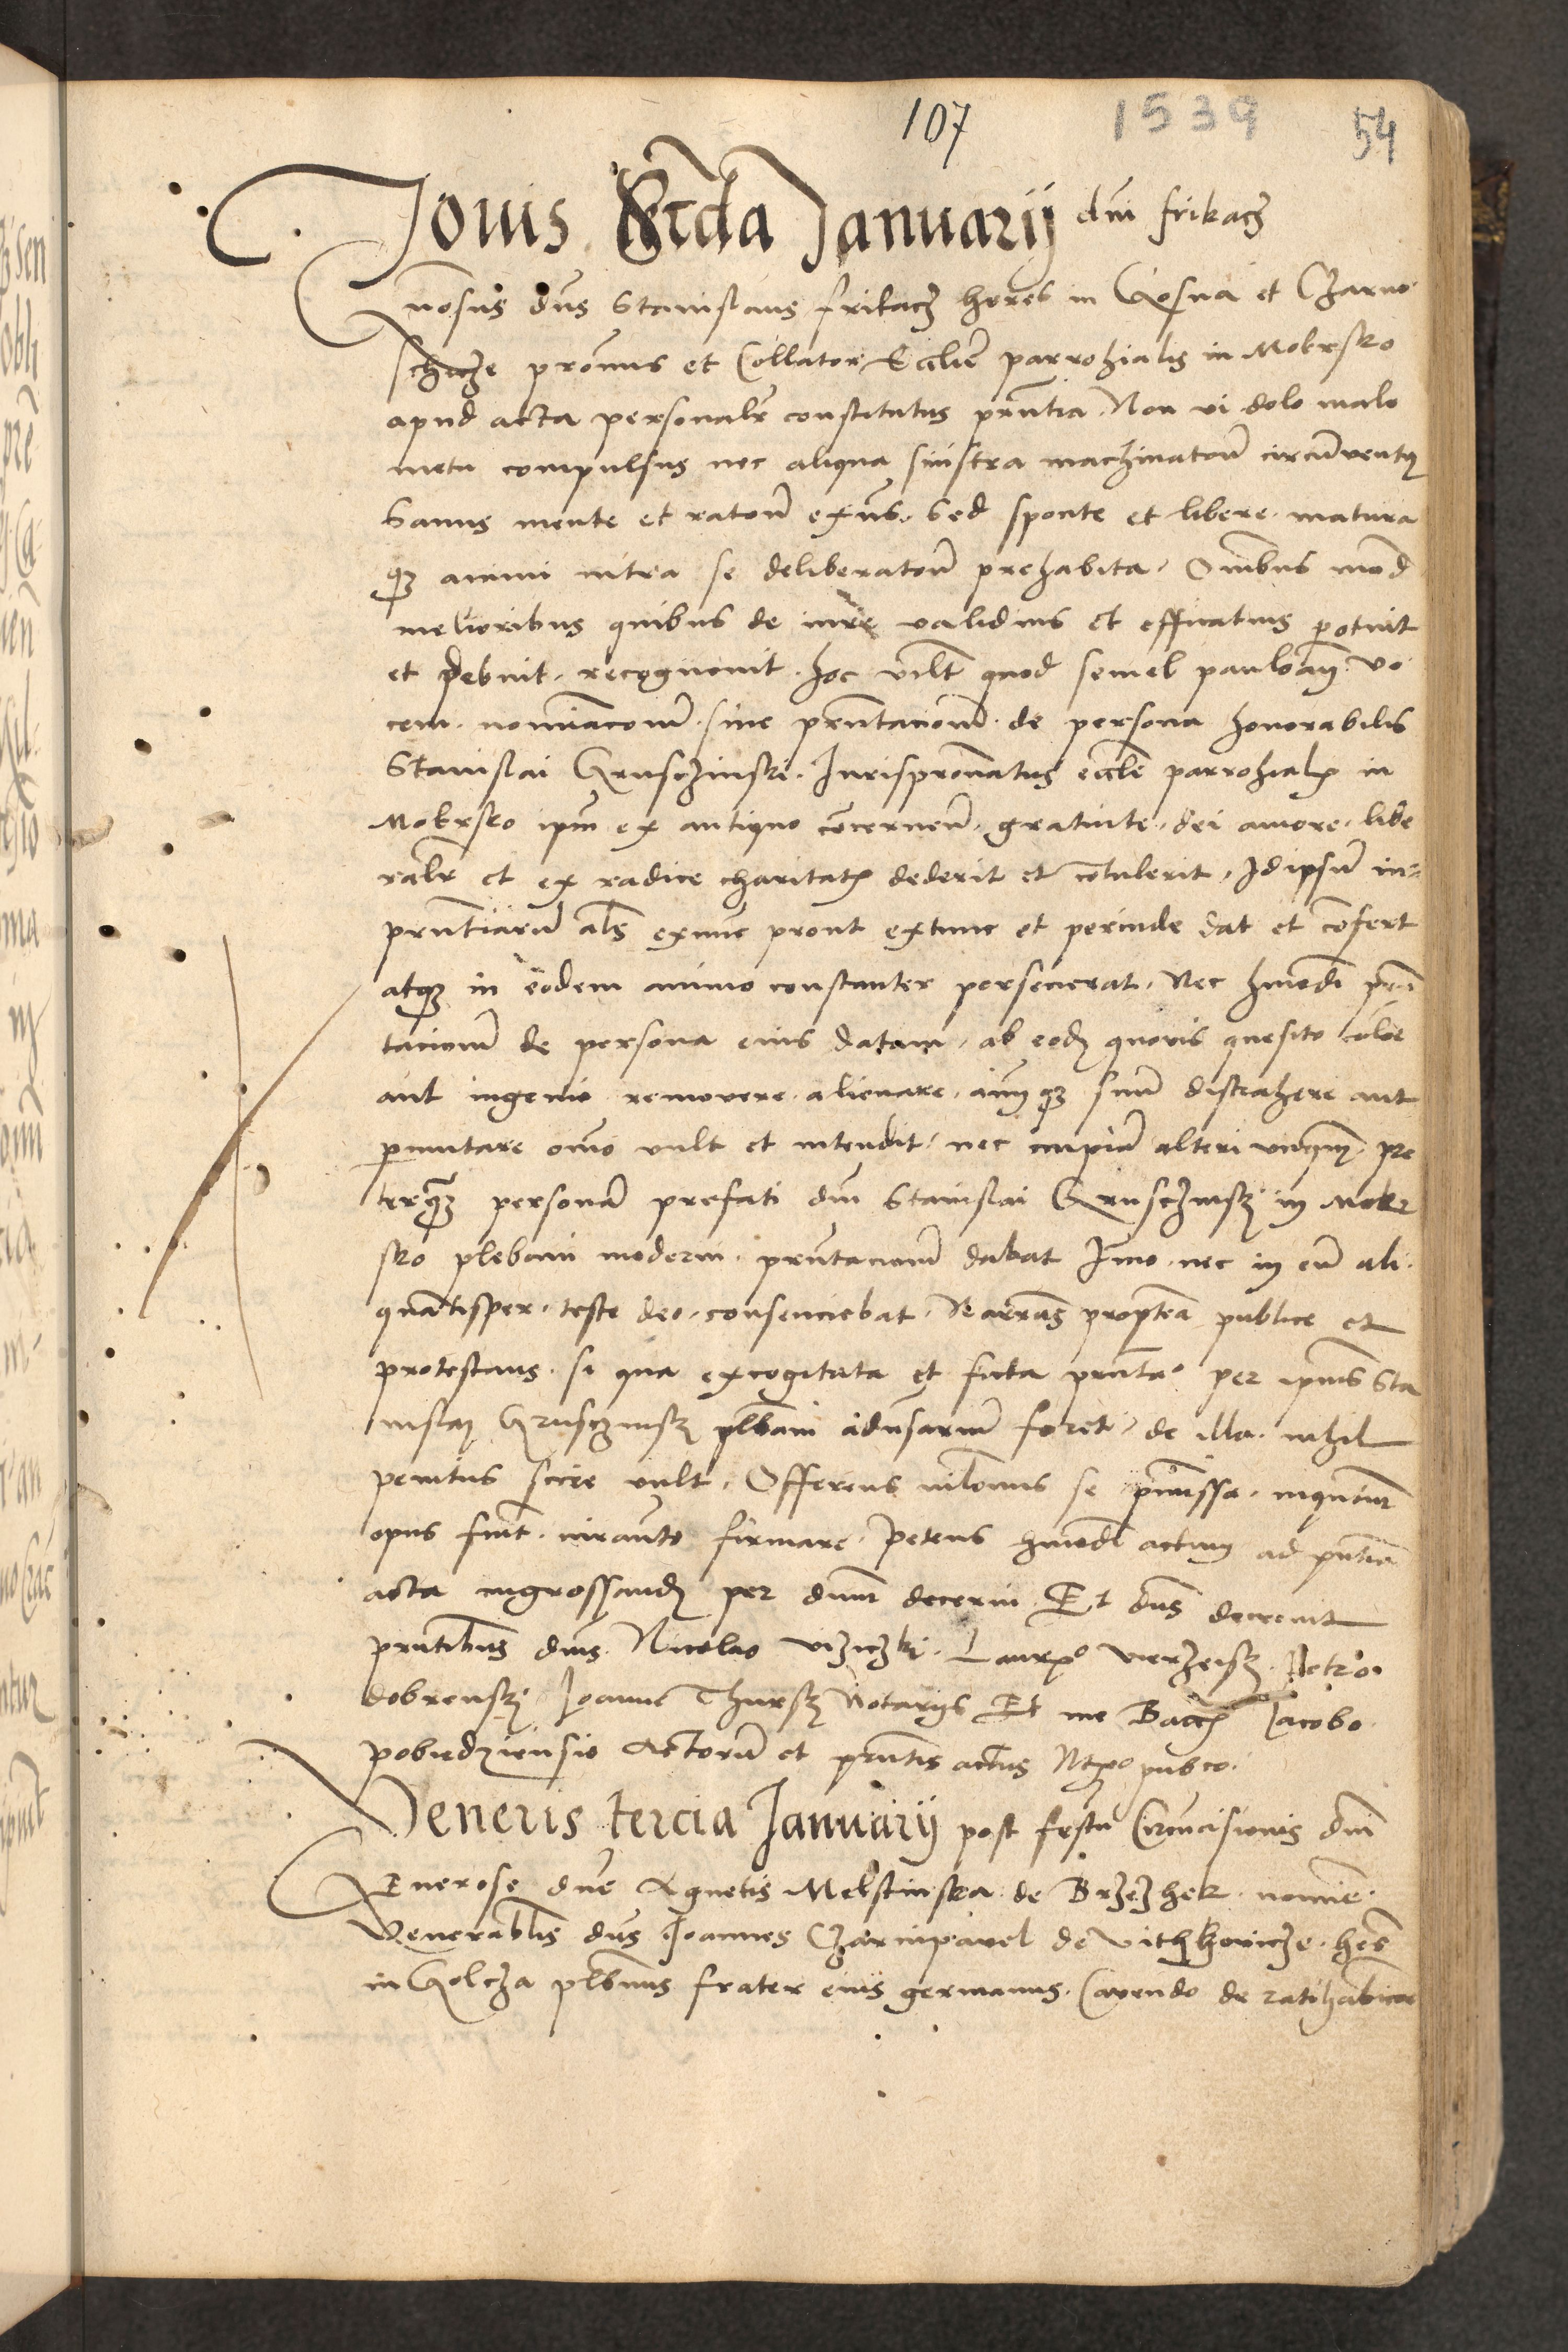 107 1539 54
Jovis Scda Januarij dni frikacz
Gnosus dns Stanislaus frikacz heres in Gosna et Czarno
schicze pronus et Collator Ecclie parrohialis in Mokrsko
apud acta personalr constitutus prntia. Non vi dolo malo
metu compulsus nec aliqua sinistra machinatoe circumventus
Sanus mente et ratoe exns. Sed sponte et libere. matura
q3 animi intra se deliberatoe prehabita. Omibus mod
melioribus quibus de iure validius et efficatius potuit
et debuit. recognovit. hoc vilt quod semel pauloan vo
cem. nominaconem. sive prntacionem. de persona honorabilis
Stanislai Gruschinski. Jurispronatus ecclie parrohialis in
Mokrsko ipm ex antiquo concernen. gratuite. dei amore. libe
ralr et ex radice charitatis dederit et contulerit. Id ipsum in
prntiarum als exnunc prout extunc et perinde dat et confert
atq3 in eodem animo constanter perseverat. Nec hmodi prn
tacionem de persona eius datam. ab eodem quovis quesito colore
aut ingenio removere alienare. q3 suum distrahere aut
pmutare omo vult et intendit. nec alteri unquam. pre
terq3 personam prefati dni Stanislai Gruschinski in Mokr
sko plebani moderni. prntacionem dabat Imo. nec in eum ali
quantisper. teste deo. consenciebat. Narrans proptea publice et
protestans. si qua excogitata et ficta prntao per ipius Sta
nislai Gruschinski plbani adusarium foret. de illa. nihil
penitus scire vult. Offerens nilominus se pmissa. inquantum
opus fuit. iurauto firmare. Petens hmodi actum ad pntia
acta ingrossandum per dnum decerni. Et dns decrevit
prntibus dnis. Nicolao Lauro Petro
dobrenski Joanne Thurski Notarijs Et me Bacc Jacobo
pobiedziensis Actorum et prntis actus Ntro pubco.
Veneris tercia Januarij post festu Circumcisionis dni
Generose dne Agnetis Melstinska de nomine
Venerablis dns Joannes de heres
in Golcza plbnus frater eius germanus. Cavendo de ratihabicoe